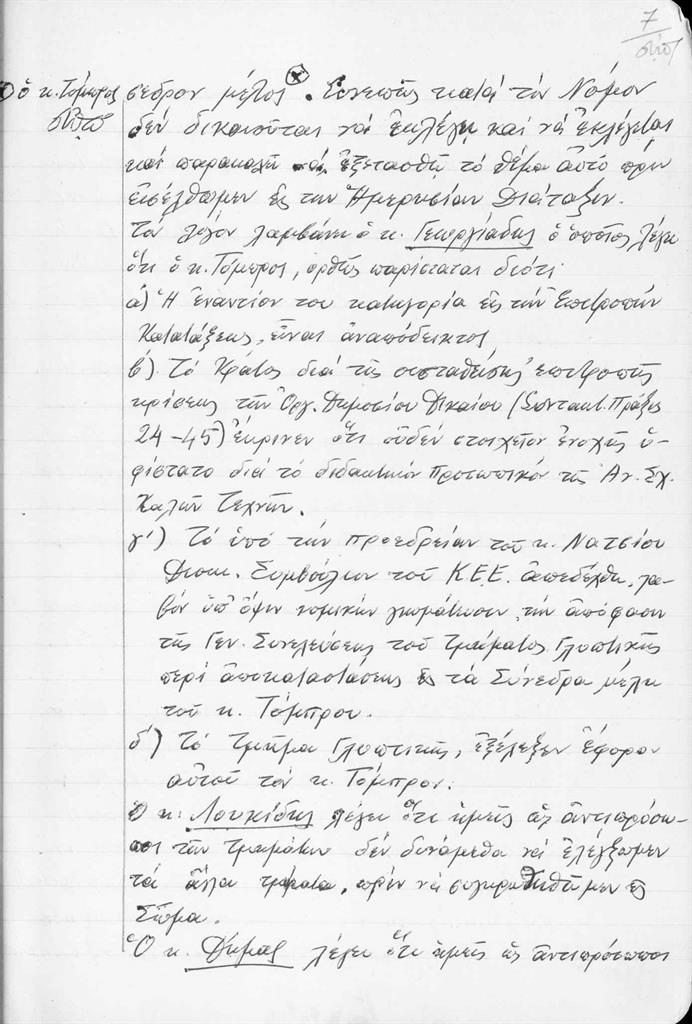 7
ὁ κ. Τόμπρος
σεδρον μέλος ⊗. Συνεπῶς κατά τόν Νόμον
δέν δικαιοῦται νά ἐκλέγῃ καί νά ἐκλέγεται
καί παρακαλῶ νά ἐξετασθῇ τό θέμα αὐτό πρίν
εἰσέλθωμεν εἰς τήν Ἡμερησίαν Διάταξιν.
Τόν λόγον λαμβάνει ὁ κ. Γεωργιάδης ὁ ὁποῖος λέγει
ὅτι ὁ κ. Τόμπρος, ὀρθῶς παρίσταται διότι
α) Ἡ ἐναντίον του κατηγορία εἰς τήν Ἐπιτροπήν
Κατατάξεως, εἶναι ἀναπόδεικτος
β) Τό Κράτος διά τῆς συσταθείσης ἐπιτροπῆς
κρίσεως τῶν Ὀργ. Δημοσίου Δικαίου (Συντακτ. Πράξις
24-45) ἔκρινεν ὅτι οὐδέν στοιχεῖον ἐνοχῆς ὑ-
φίστατο διά τό διδακτικόν προσωπικόν τῆς Αν. Σχ.
Καλῶν Τεχνῶν.
γ') Τό ὑπό τήν προεδρείαν τοῦ κ. Νάτσιου
Διοικ. Συμβούλιον τοῦ Κ.Ε.Ε. ἀπεδέχθη, λα-
βόν ὑπ' ὄψιν νομικήν γνωμάτευσιν, τήν ἀπόφασιν
τῆς Γεν. Συνελεύσεως τοῦ τμήματος Γλυπτικῆς
περί ἀποκαταστάσεως εἰς τά Σύνεδρα μέλη
τοῦ κ. Τόμπρου.
δ') Τό τμῆμα Γλυπτικῆς, ἐξέλεξεν ἔφορον
αὐτοῦ τόν κ. Τόμπρον.
Ὁ κ. Λουκίδης λέγει ὅτι ἡμεῖς ὡς ἀντιπρόσω-
ποι τῶν τμημάτων δέν δυνάμεθα νά ἐλέγξωμεν
τά ἄλλα τμήματα, πρίν νά συγκροτηθῶμεν εἰς
Σῶμα.
Ὁ κ. Δήμας λέγει ὅτι ἡμεῖς ὡς ἀντιπρόσωποι